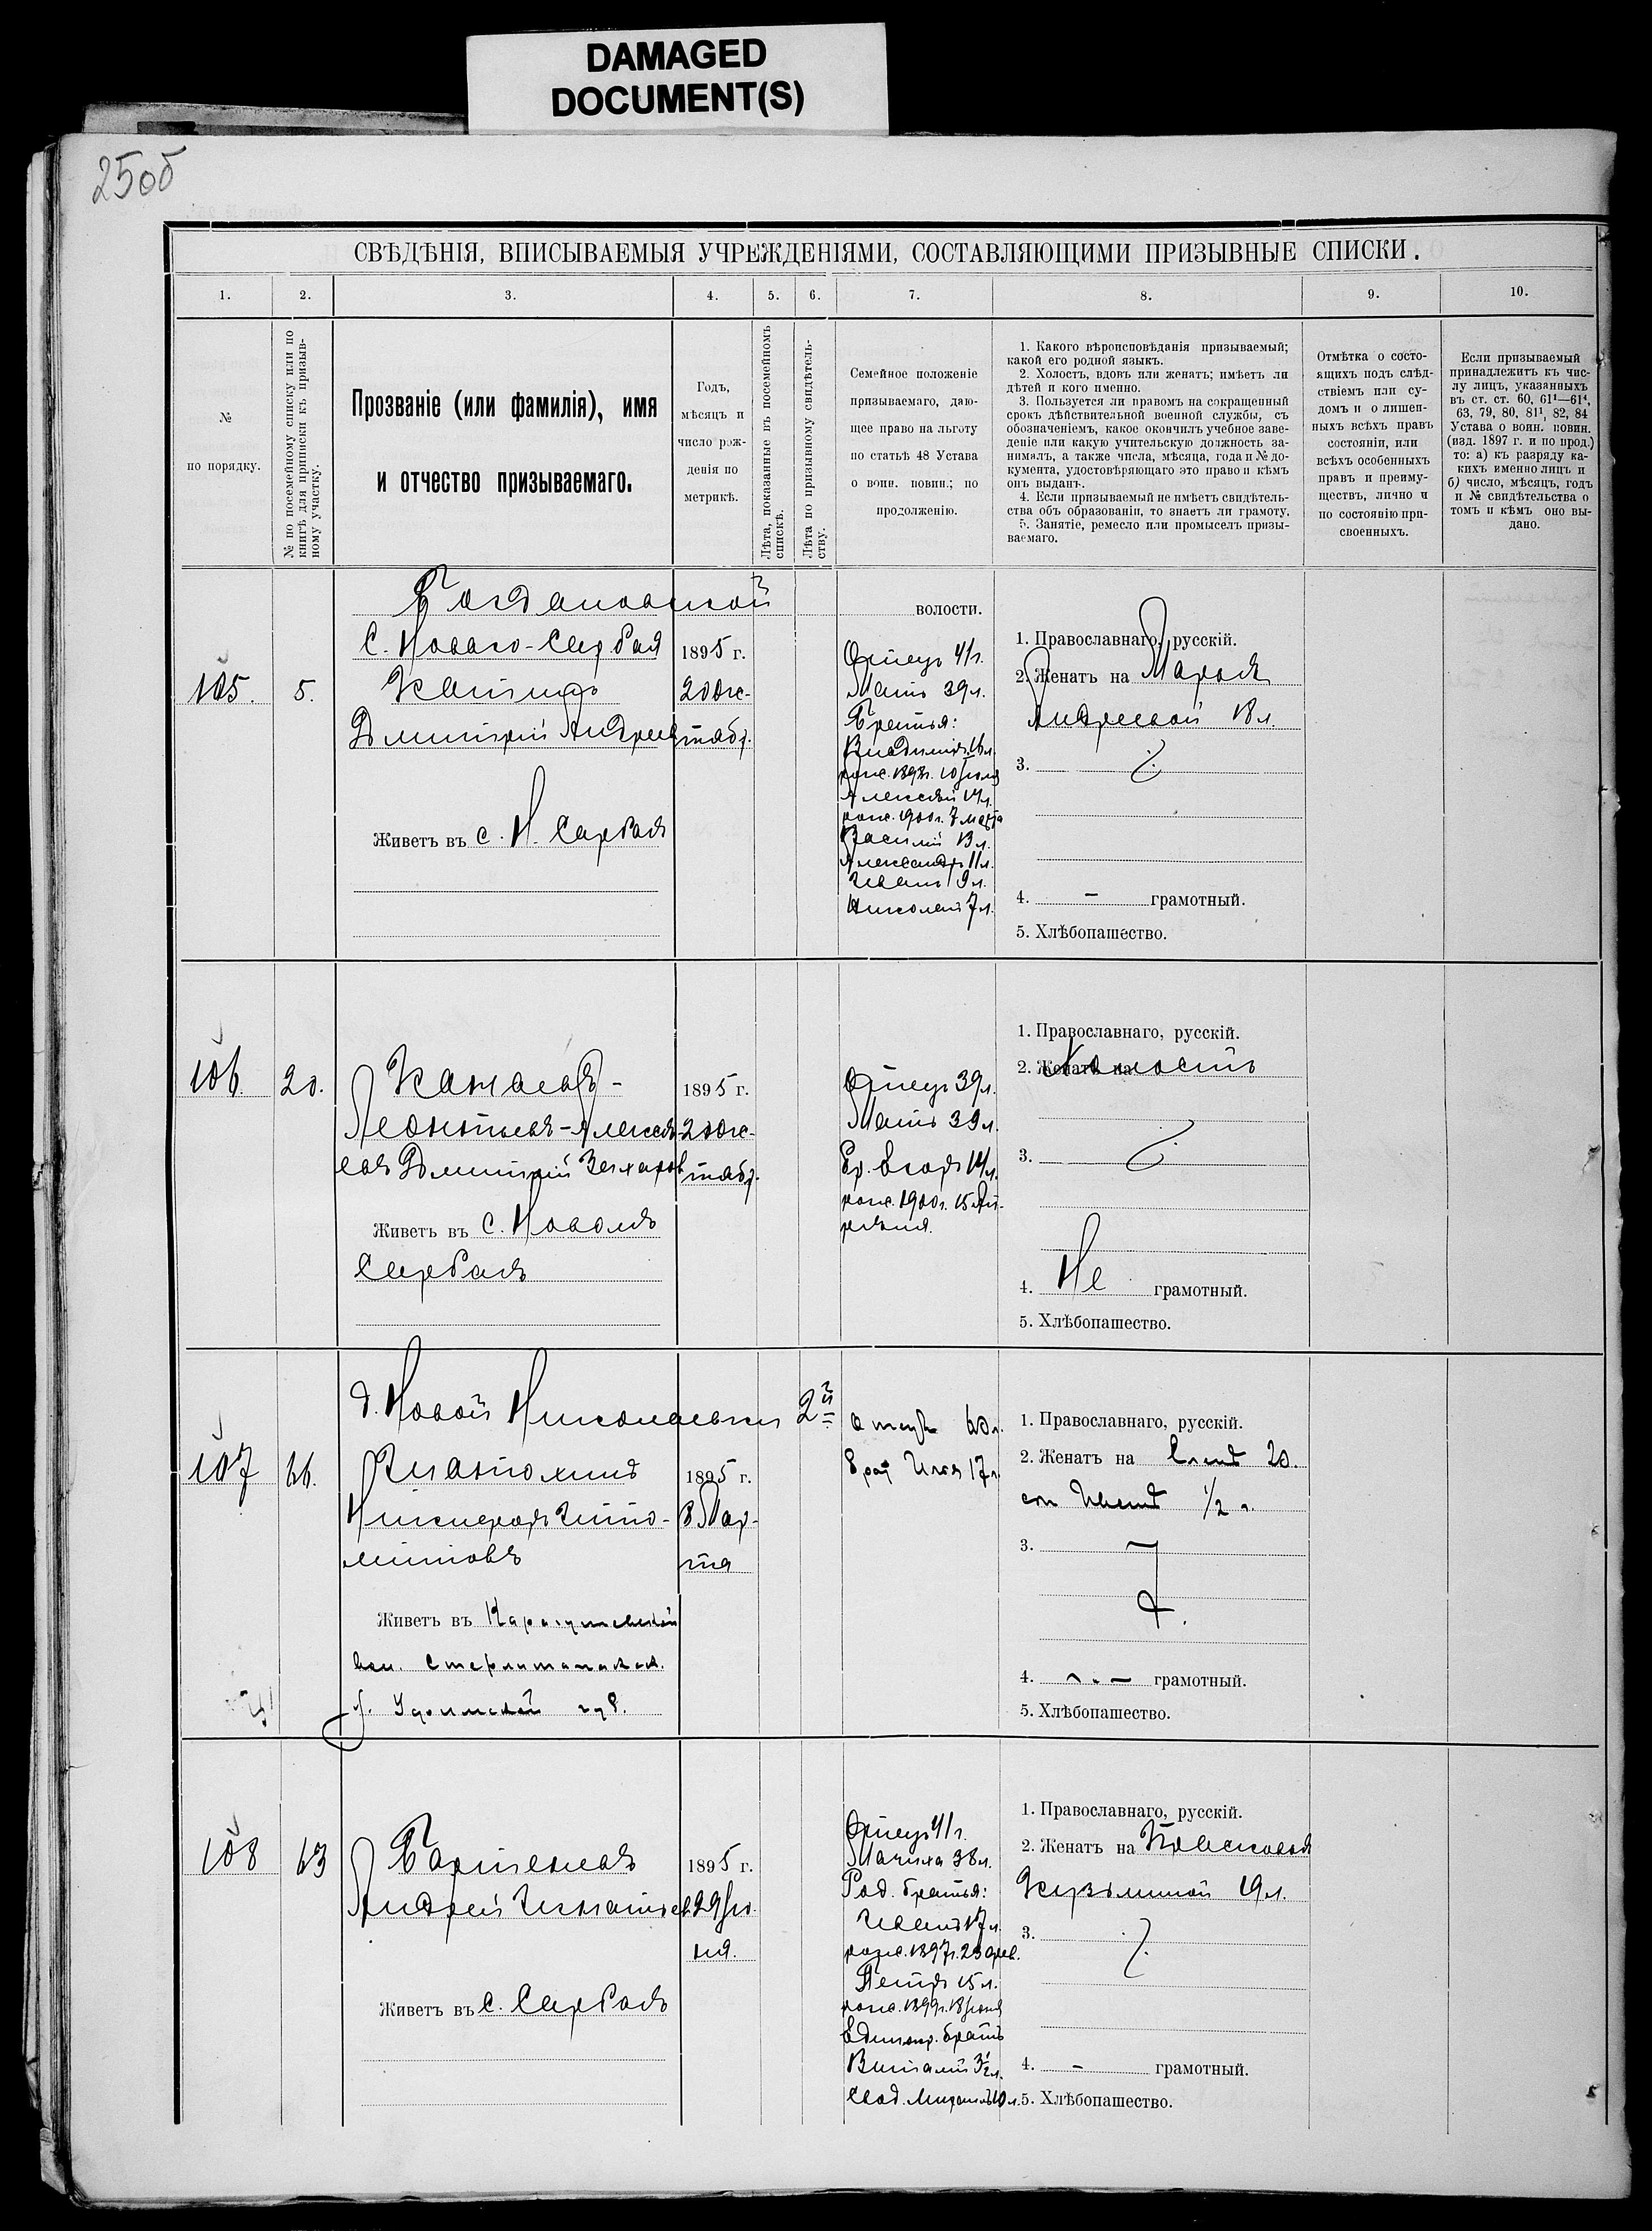 DAMAGED
DOCUMENT(S)
25об
СВѢДѢНІЯ, ВПИСЫВАЕМЫЯ УЧРЕЖДЕНІЯМИ, СОСТАВЛЯЮЩИМИ ПРИЗЫВНЫЕ СПИСКИ.
1.
2.
3.
4.
5.
6.
7.
8.
9.
10.
№
по порядку.
№ по посемейному списку или по
книгѣ для приписки къ призыв-
ному участку.
Прозваніе (или фамилія), имя
и отчество призываемаго.
Годъ,
мѣсяцъ и
число рож-
денія по
метрикѣ.
Лѣта, показанные въ посемейномъ
спискѣ.
Лѣта по призывному свидѣтель-
ству.
Семейное положеніе
призываемаго, даю-
щее право на льготу
по статьѣ 48 Устава
о воин. повин.; по
продолженію.
1. Какого вѣроисповѣданія призываемый;
какой его родной языкъ.
2. Холостъ, вдовъ или женатъ; имѣетъ ли
дѣтей и кого именно.
3. Пользуется ли правомъ на сокращенный
срокъ дѣйствительной военной службы, съ
обозначеніемъ, какое окончилъ учебное заве-
деніе или какую учительскую должность за-
нималъ, а также числа, мѣсяца, года и № до-
кумента, удостовѣряющаго это право и кѣмъ
онъ выданъ.
4. Если призываемый не имѣетъ свидѣтель-
ства объ образованіи, то знаетъ ли грамоту.
5. Занятіе, ремесло или промыселъ призы-
ваемаго.
Отмѣтка о состо-
ящихъ подъ слѣд-
ствіемъ или су-
домъ и о лишен-
ныхъ всѣхъ правъ
состоянія, или
всѣхъ особенныхъ
правъ и преиму-
ществъ, лично и
по состоянію при-
своенныхъ.
Если призываемый
принадлежитъ къ чис-
лу лицъ, указанныхъ
въ ст. ст. 60, 61¹—61⁴,
63, 79, 80, 81¹, 82, 84
Устава о воин. повин.
(изд. 1897 г. и по прод.)
то: а) къ разряду ка-
кихъ именно лицъ и
б) число, мѣсяцъ, годъ
и № свидѣтельства о
томъ и кѣмъ оно вы-
дано.
Богдановской волости.
С. Новаго-Сарбая
105. 5.
Дмитрій Андреев
1895 г.
20 Ок-
тябр.
Живетъ въ с. Н. Сарбаѣ
Отецъ 41 г.
Мать 39 л.
Братья:
Владиміръ 16 л.
рож. 1898 г. 10 Іюля
Алексѣй 14 л.
рож. 1900 г. 7 марта
Василій 13 л.
Александръ 11 л.
Иванъ 9 л.
Николай 7 л.
1. Православнаго, русскій.
2. Женатъ на Марьѣ
Андреевой 18 л.
3.
4. — грамотный.
5. Хлѣбопашество.
106. 20.
Канаевъ -
Леонтьевъ - Алексѣ-
евъ Дмитрій Захаров
1895 г.
20 Ок-
тябр.
Живетъ въ с. Новомъ
Сарбаѣ
Отецъ 39 л.
Мать 39 л.
рож. 1900 г. 15 Ап-
рѣля.
1. Православнаго, русскій.
2. Женатъ на Холостъ
3.
4. Не грамотный.
5. Хлѣбопашество.
д. Новой Николаевки 2й
107 66.
Никифоръ Тито-
1895 г.
8 Мар-
та
Живетъ въ
вол. Стерлитамакск.
у. Уфимской губ.
Отецъ 60 л.
брат Илья 17 л.
1. Православнаго, русскій.
2. Женатъ на Елена 20.
сын Иванъ 1/2 г.
3.
4. — грамотный.
5. Хлѣбопашество.
108 63
Андрей Игнатьев
1895 г.
29 Ію-
ня.
Живетъ въ с. Сарбаѣ
Отецъ 41 г.
Мачиха 38 л.
Род. братья:
Иванъ 17 л.
рож. 1897 г. 23 фев.
Петръ 15 л.
рож. 1899 г. 18 Іюня
Единокр. братъ
Виталій 3½ л.
Свод. Михаилъ 10 л.
1. Православнаго, русскій.
2. Женатъ на Пелагеѣ
Кузьминой 19 л.
3.
4. — грамотный.
5. Хлѣбопашество.